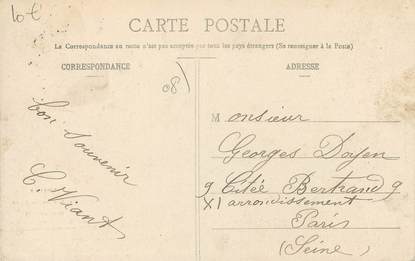 10 €
CARTE POSTALE
La Correspondance au recto n'est pas acceptée par tous les pays étrangers (Se renseigner à la Poste)
CORRESPONDANCE
ADRESSE
08)
bon souvenir
C. Viant
Monsieur
Georges Doyen
9 Citée Bertrand 9
XI arrondissement
Paris
(Seine)